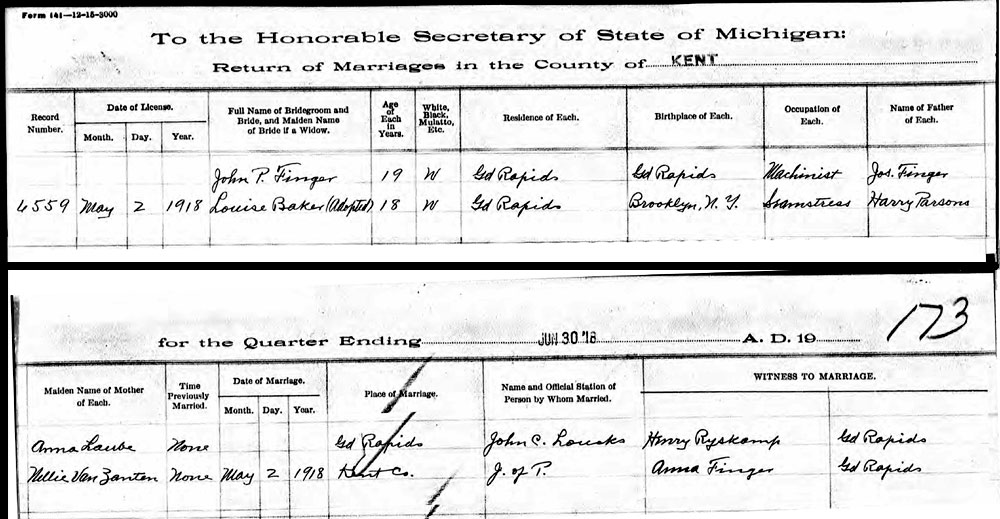 Form 141—12-15-3000
To the Honorable Secretary of State of Michigan:
Return of Marriages in the County of KENT
Record Number. Date of License. Month. Day. Year. Full Name of Bridegroom and Bride, and Maiden Name of Bride if a Widow. Age of Each in Years. White, Black, Mulatto, Etc. Residence of Each. Birthplace of Each. Occupation of Each. Name of Father of Each.
John P. Finger 19 W Gd Rapids Gd Rapids Machinist Jos. Finger
4559 May 2 1918 Louise Baker (Adopted) 18 W Gd Rapids Brooklyn, N. Y. Seamstress Harry Parsons
173
for the Quarter Ending JUN 30 '18 A. D. 19
Maiden Name of Mother of Each. Time Previously Married. Date of Marriage. Month. Day. Year. Place of Marriage. Name and Official Station of Person by Whom Married. WITNESS TO MARRIAGE.
Anna Laube None Gd Rapids John C. Loucks Henry Ryskamp Gd Rapids
Nellie Van Zanten None May 2 1918 Kent Co. J. of P. Anna Finger Gd Rapids